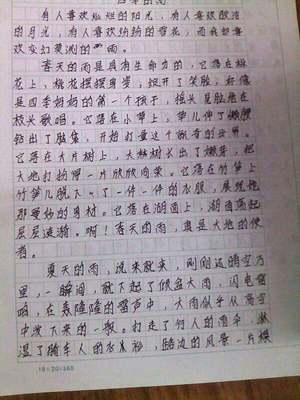 四季的雨
有人喜欢灿烂的阳光，有人喜欢皎洁
的月光，有人喜欢纷纷的雪花，而我却喜
欢变幻莫测的雨。
春天的雨是具有生命力的，它落在桃
花上，桃花摆摆身姿，绽开了笑脸，好像
是四季妈妈的第一个孩子，摇头晃脑地在
枝头歌唱。它落在小草上，草儿伸了懒腰
钻出了脑袋，开始打量这个新奇的世界。
它落在大片树上，大林树长出了嫩芽，把
大地打扮得一片欣欣向荣。它落在竹笋上
竹笋儿脱下了一件一件的衣服，展现他
那曼妙的身材。它落在湖面上，湖面荡起
层层涟漪。啊！春天的雨，真是大地的使
者。
夏天的雨，说来就来，刚刚还晴空万
里，一瞬间，就下起了倾盆大雨，闪电雷
鸣，在轰隆隆的雷声中，大雨似乎从高空
中泼下来的一般。打走了行人的雨伞，淋
湿了骑车人的衣裤，路边的风景一片模
18×20=360